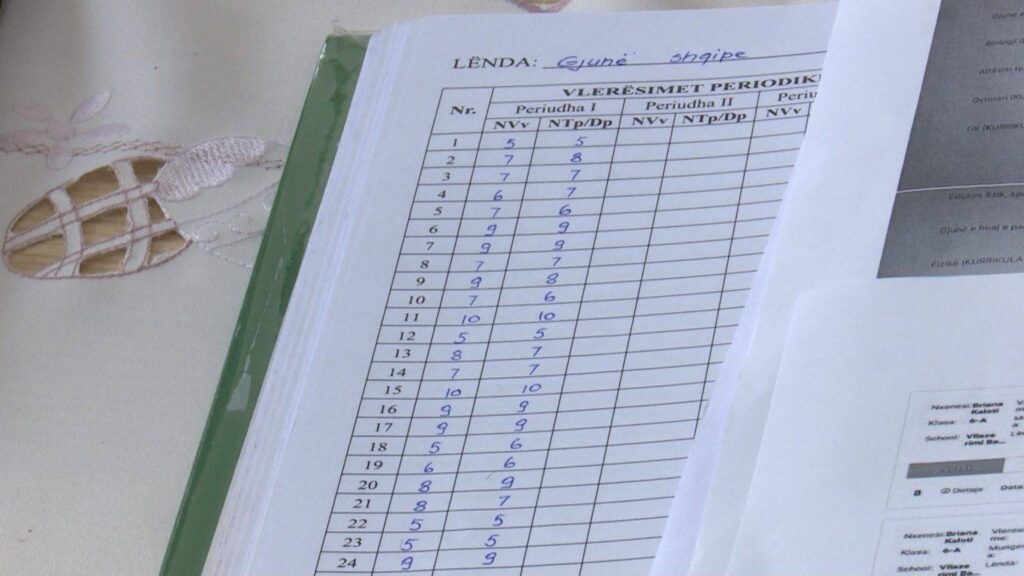 LËNDA: Gjunë shqipe
VLERËSIMET PERIODIK
Nr. Periudha I Periudha II Periu
NVv NTp/Dp NVv NTp/Dp NVv
1 5 5
2 7 8
3 7 7
4 6 7
5 7 6
6 9 9
7 9 9
8 7 7
9 9 8
10 7 6
11 10 10
12 5 5
13 8 7
14 7 7
15 10 10
16 9 9
17 9 9
18 5 6
19 6 6
20 8 9
21 8 7
22 5 5
23 5 5
24 9 9
Biologji
TIK (KURRIKUL
Edukim fizik, sp
Gjuhë e huaj e pa
Fizikë (KURRIKULA
Nxenesi: Briana Kaloti
Klasa: 6-A
School: Vilaza rimi Ba...
8 Detaje Data
Nxenesi: Briana Kaloti Vlerës me:
Klasa: 6-A Munges a:
School: Vilaza rimi Ba... Lënda: